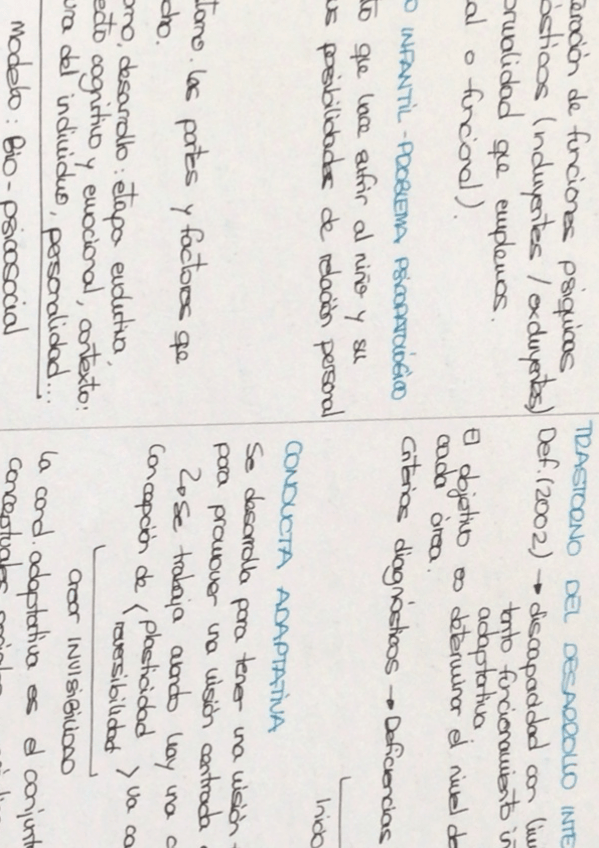 eración de funciones psíquicas
ósticos (incluyentes / excluyentes)
ormalidad que empleemos.
al o funcional).
O INFANTIL - PROBLEMA PSICOPATOLÓGICO
to que hace sufrir al niño y su
us posibilidades de relación personal
torno. Las partes y factores que
cho.
orno, desarrollo: etapa evolutiva,
ecto cognitivo y emocional, contexto:
ura del individuo, personalidad...
Modelo: Bio-psicosocial
TRASTORNO DEL DESARROLLO INTE
Def. (2002) → discapacidad con lim
tanto funcionamiento in
adaptativa
El objetivo es determinar el nivel de
cada área.
Criterios diagnósticos → Deficiencias
Inicio
CONDUCTA ADAPTATIVA
Se desarrolla para tener una visión
para promover una visión centrada
↳ Se trabaja cuando hay una c
Concepción de < plasticidad > va ca
reversibilidad
crear INVISIBILISMO
La cond. adaptativa es el conjunt
conceptuales, sociales